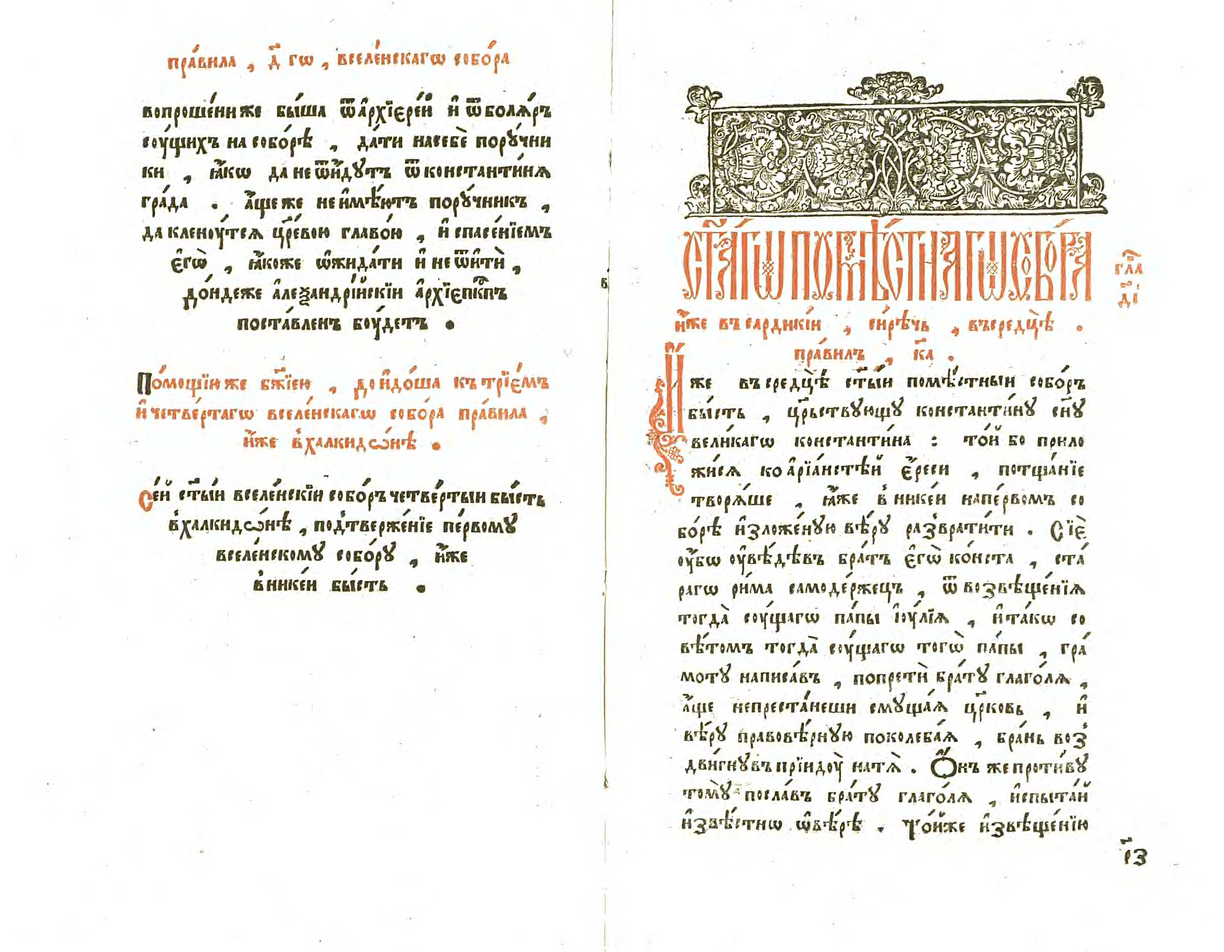 пра́вила , д҃ гѡ , вселе́нскагѡ собо́ра
вопроше́ни же бы́ша ѿ а҆рхїере́й и҆ ѿ боля́ръ
сꙋ́щихъ на собо́рѣ , да́ти на себѐ порꙋ́чни
ки , ꙗ҆́кѡ да не ѿи́дꙋтъ ѿ константи́на
гра́да . А҆́ще же не и҆мѣ́ютъ порꙋ́чникъ ,
да кленꙋ́тся цр҃е́вою главо́ю , и҆ спасе́нїемъ
є҆гѡ̀ , ꙗ҆́коже ѡ҆жида́ти и҆ не ѿитѝ ,
до́ндеже а҆леѯандрі́йскїи а҆рхїепⷭ҇кпъ
поста́вленъ бꙋ́детъ .
По́мощїю же бж҃їею , до и҆до́ша къ трїе́мъ
и҆ четве́ртагѡ вселе́нскагѡ собо́ра пра́вила ,
и҆́же в халкидо́нѣ .
Се́й ст҃ы́и вселе́нскїи собо́ръ четве́ртыи бы́сть
в халкидо́нѣ , под̾тверже́нїе пе́рвомꙋ
вселе́нскомꙋ собо́рꙋ , и҆́же
в нике́и бы́сть .
СТ҃А́ГѠ ПОМѢ́СТНАГѠ СОБО́РА
гла
д҃і
и҆́же въ сардикі́и , си́рѣчь , въ средцѣ̀ .
пра́вилъ , к҃а .
И҆́же въ средцѣ̀ ст҃ы́и помѣ́стныи собо́ръ
бы́сть , цр҃ьствꙋ́ющꙋ константи́нꙋ сн҃ꙋ
вели́кагѡ константи́на : то́й бо прило
жи́ся ко а҆рїа́нстѣй є҆́реси , потща́нїе
творя́ше , ꙗ҆́же в нике́и на пе́рвомъ со
бо́рѣ и҆зложе́нꙋю вѣ́рꙋ раз̾врати́ти . Сїѐ
ᲂу҆́бѡ ᲂу҆вѣ́дѣвъ бра́тъ є҆гѡ̀ ко́нста , ста́
рагѡ ри́ма самоде́ржецъ , ѿ возвѣще́нїя
тогда̀ сꙋ́щагѡ па́пы і҆ꙋ́лїя , и҆ та́кѡ со
вѣ́томъ тогда̀ сꙋ́щагѡ тогѡ̀ па́пы , гра́
мотꙋ написа́въ , попретѝ бра́тꙋ глаго́ля ,
а҆́ще не преста́неши смꙋща́я цр҃ковь , и҆
вѣ́рꙋ правовѣ́рнꙋю поколеба́я , бра́нь воз̾
дви́гнꙋвъ прїидꙋ̀ на тя̀ . Ѻ҆́нъ же проти́вꙋ
томꙋ̀ посла́въ бра́тꙋ глаго́ля , и҆спыта́й
и҆звѣ́стнѡ ѡ҆ вѣ́рѣ . То́йже и҆звѣще́нїю
р҃з